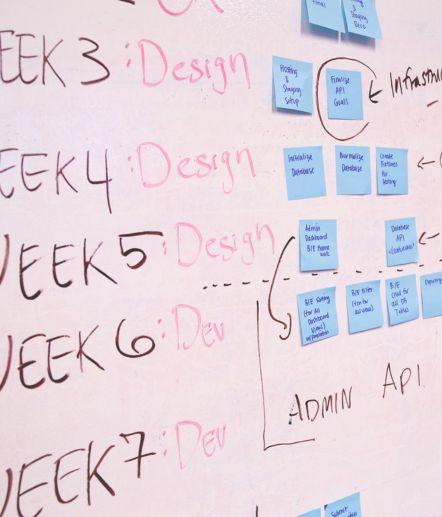 Final
& Staging
EEK 3 : Design
Hosting
& Staging
Setup
Finalize
API
Goals
← Infrastru
EEK 4 : Design
Initialize
Database
Normalize
Database
Create
Fixtures
for
Testing
←
WEEK 5 : Design
Admin
Dashboard
B/E Frame
work
Database
API
←
WEEK 6 : Dev
(for All
Dashboard
Views)
B/E Filter
(for for
all views)
B/E
Crud for
all DB
Tables
ADMIN API
WEEK 7 : Dev
Submit